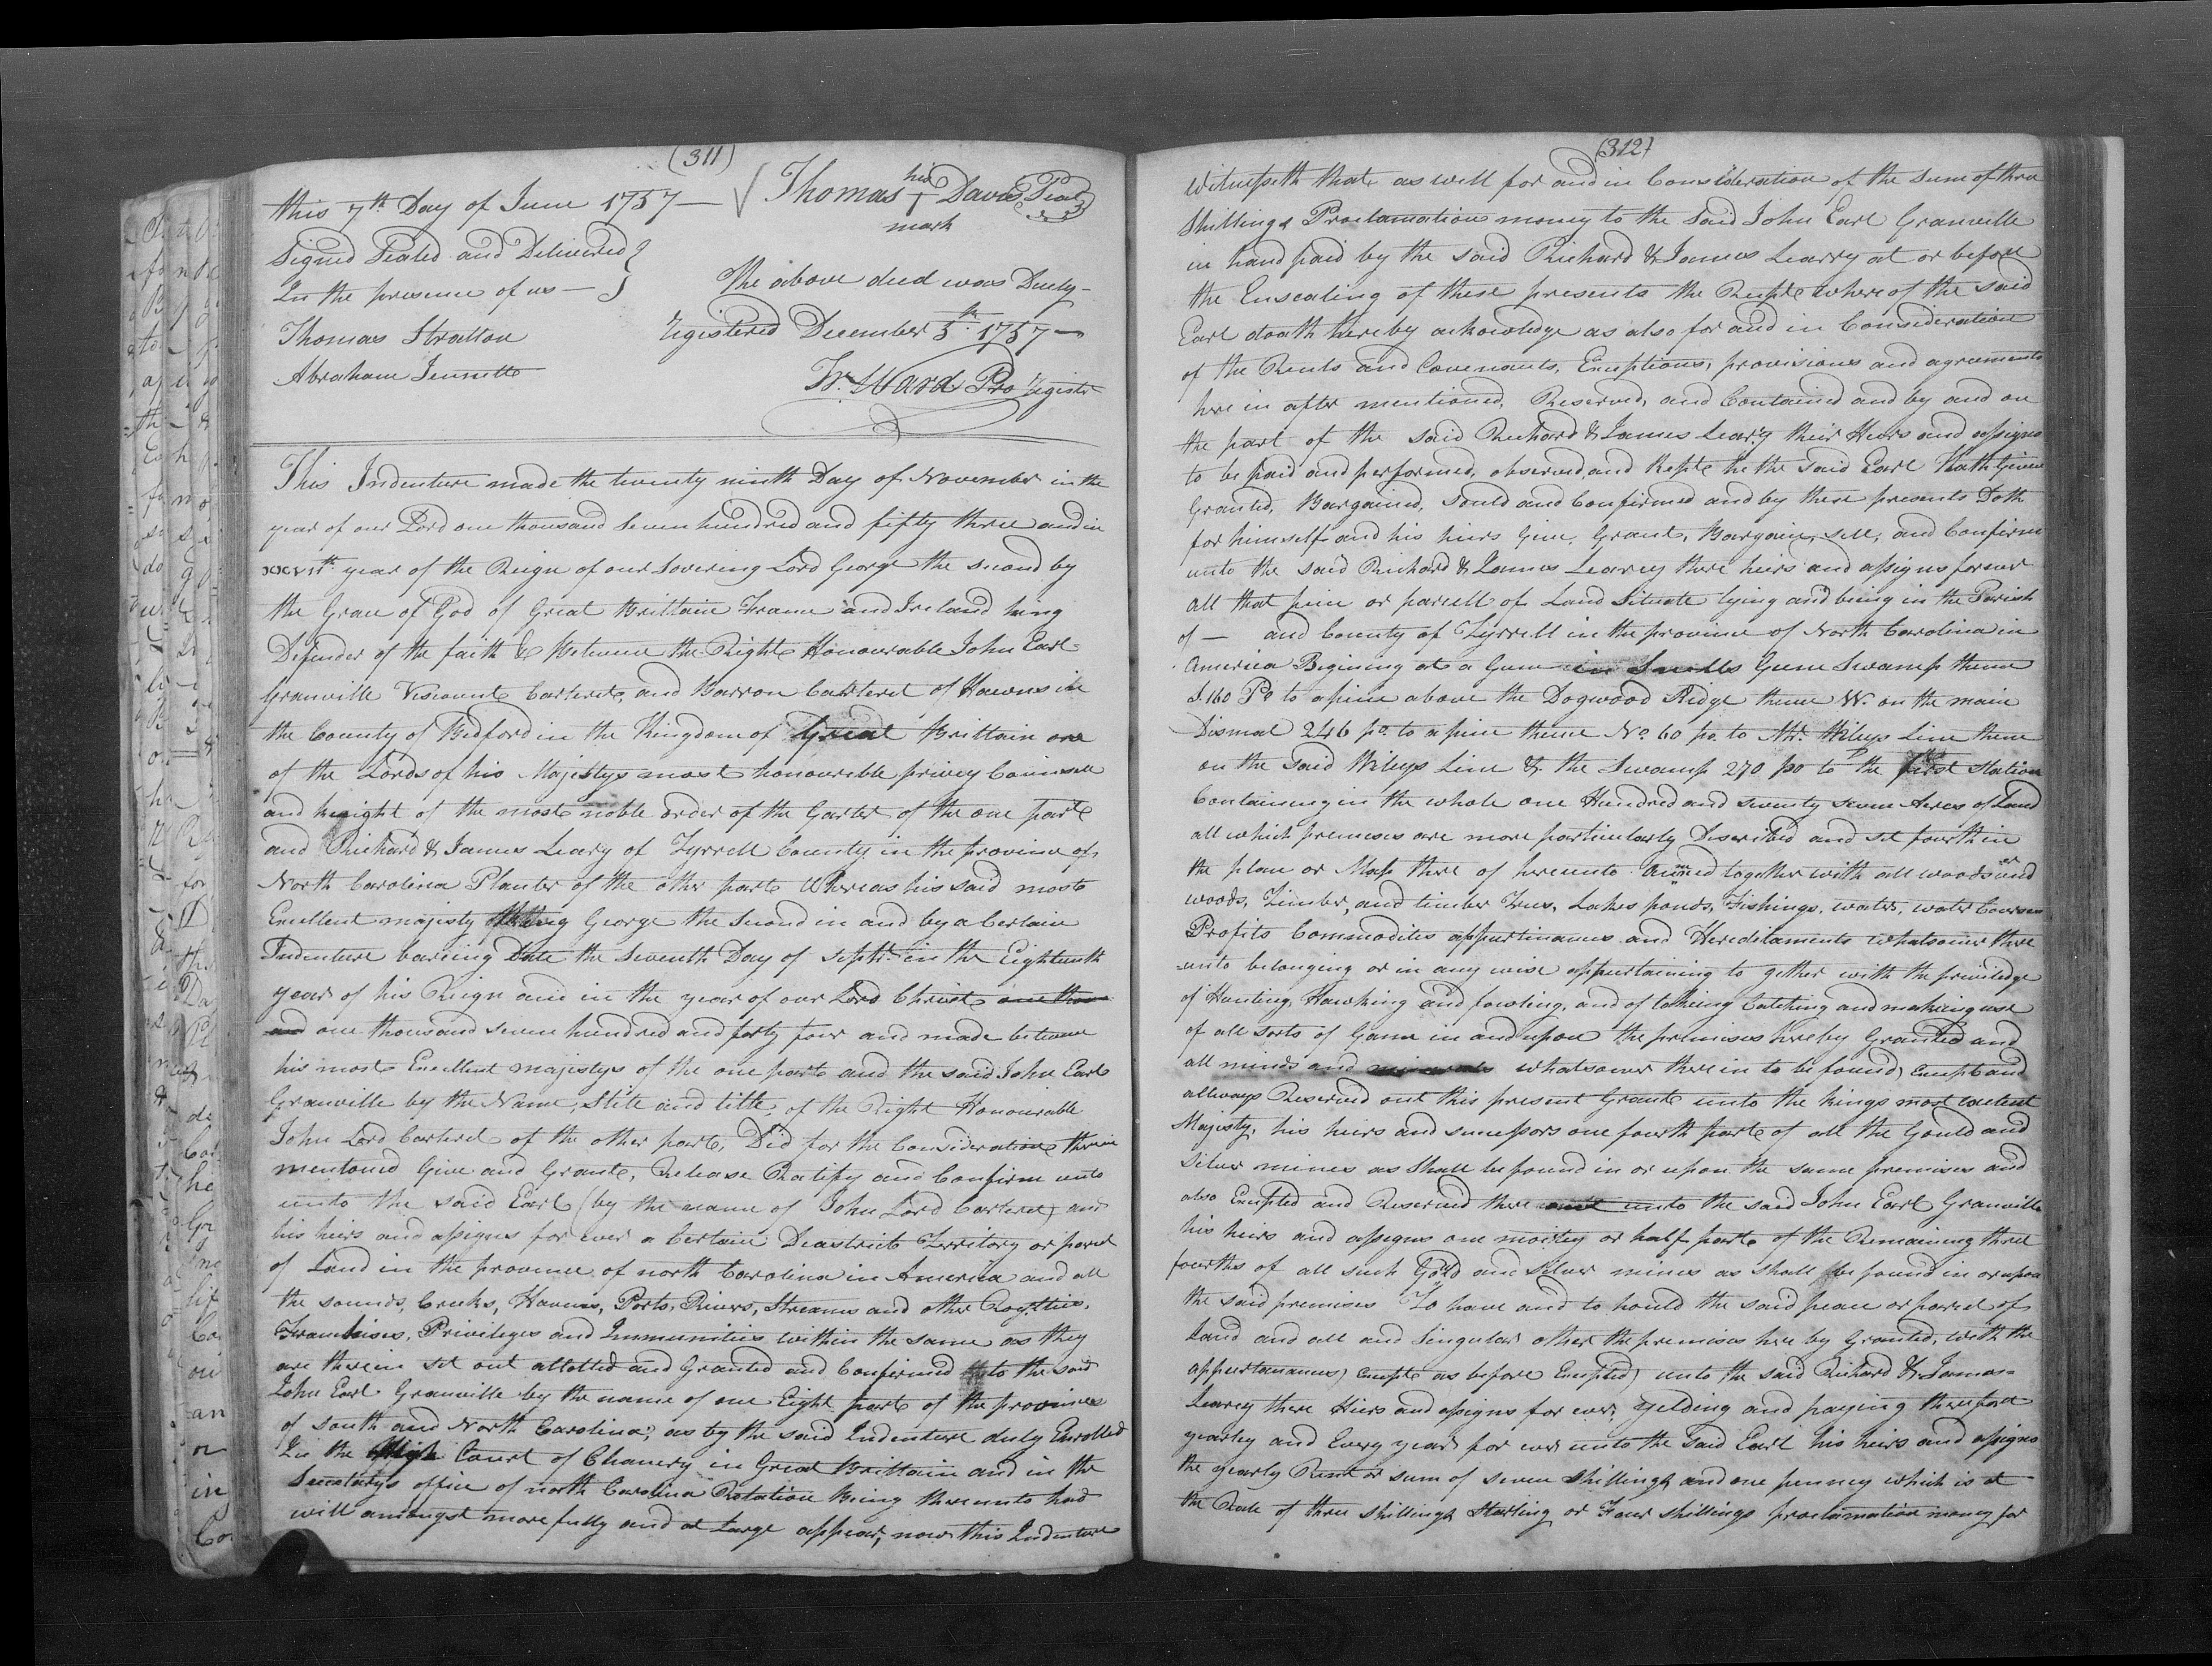 (311)
this 7th Day of June 1757 — Thomas his T mark Davis Seal
Signed Sealed and Delivered
In the presence of us —
The above deed was Duely
Thomas Stratton
registered December 5th 1757 —
Abraham Jennette
Wm Ward Pro Register
This Indenture made the twenty ninth Day of November in the
year of our Lord one thousand seven hundred and fifty three and in
xxvijth year of the Reign of our Sovering Lord George the second by
the Grace of God of Great Brittain France and Ireland king
Defender of the faith &c Between the Right Honourable John Earl
Granville Viscount Carteret, and Barron Carteret of Hawns in
the County of Bedford in the Kingdom of Great Brittain one
of the Lords of his Majestys most honourable privey Counsell
and knight of the most noble order of the Garter of the one part
and Richard & James Leary of Tyrrell County in the province of
North Carolina Planter of the other part Whereas his said most
Excellent majesty King George the Second in and by a Certain
Indenture bareing Date the Seventh Day of Septr in the Eighteenth
year of his Reign and in the year of our Lord Christ one thou
and one thousand seven hundred and forty four and made between
his most Excellent majestys of the one part and the said John Earl
Granville by the Name, Stile and title, of the Right Honourable
John Lord Carteret of the other part, Did for the Consideration therein
mentoned Give and Grant, Release Ratify and Confirm unto
unto the said Earl (by the name of John Lord Carteret) and
his heirs and assigns for ever a Certain Deastrict Territory or parcel
of Land in the province of north Carolina in America and all
the sounds, Creeks, Havens, Ports, Rivers, Streams and other Roylties,
Franchises, Privileges and Immunities within the same as they
are therein set out allotted and Granted and Confirmed to the said
John Earl Granville by the name of one Eight part of the provinces
of south and North Carolina; as by the said Indenture duly Enrolled
In the high Court of Chancry in Great Brittain and in the
Secretarys office of north Carolina Rotation Being thereunto had
will amongst more fully and at Large appear, now this Indenture
(312)
Witnesseth that as well for and in Consideration of the sum of three
Shillings Proclamation money to the said John Earl Granville
in hand paid by the said Richard & James Learry at or before
the Ensealing of these presents the Recipte whereof the said
Earl doath hereby acknowledge as also for and in Consideration
of the Rents and Covenants, Exceptions, provisions and agreements
here in after mentioned, Reserved, and Contained and by and on
the part of the said Richard & James Leary their Heirs and assigns
to be paid and performed, observed, and Kepte he the said Earl Hath Given
Granted, Bargained, sould and Confirmed and by these presents Doth
for himself and his heirs Give, Grant, Bargain, sell, and Confirm
unto the said Richard & James Learey there heirs and assigns forever
all that peice or parsell of Land Situate lying and being in the Parish
of — and County of Tyrrell in the province of North Carolina in
America Begining at a Gum in Gum Swamp thence
S. 160 Po to a pine above the Dogwood Ridge thence W. on the main
Dismal 246 po. to a pine thence No. 60 po. to Mr. Wileys Line thence
on the said Wileys Line & the Swamp 270 po to the first Station
Containing in the whole one Hundred and seventy seven Acres of Land
all which premises are more particularly Discribed and set fourth in
the plan or Map there of hereunto annexed together with all woods under
woods, Timber, and timber Trees, Lakes ponds, Fishings, waters, water Courses
Profits Commodites appurtinances and Hereditaments whatsoever there
unto belonging or in any wise appurtaining to gether with the priviledge
of Hunting, Hawking and fowling, and of takeing Catching and making use
of all sorts of Game in and upon the premises hereby Granted and
all minds and minerals whatsoever therein to be found, Except and
allways Reserved out this present Grant unto the kings most Exelent
Majesty, his heirs and successors one fourth part of all the Gould and
Silver mines as Shall be found in or upon the same premises and
also Excepted and Reserved there out unto the said John Earl Granville
his heirs and assigns one moitey or half part of the Remaining three
fourths of all such Gould and Silver mines as shall be found in or upon
the said premises To have and to hould the said peace or parcel of
Land and all and Singular other the premises here by Granted, with the
appurtanances) Except as before Excepted) unto the said Richard & James
Learey there Hiers and assigns for ever, Yelding and paying therefore
yearley and Every year for ever unto the said Earl his heirs and assigns
the yearly Rent or sum of seven Shillings and one penney which is at
the Rate of three Shillings Starling or Four Shillings proclamation money for